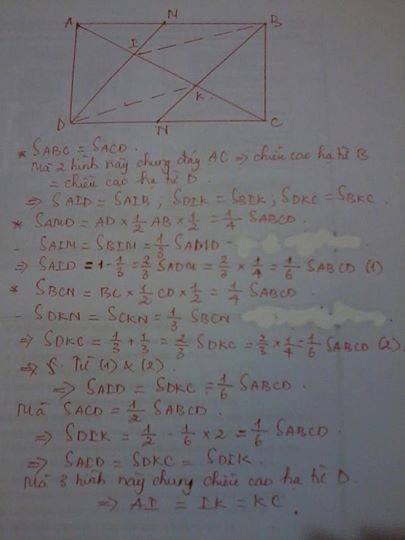 A M B
I
K
D N C
* SABC = SACD.
Mà 2 hình này chung đáy AC => chiều cao hạ từ B
= chiều cao hạ từ D.
=> SAID = SAIB ; SDIK = SBIK ; SDKC = SBKC.
* SAMD = AD × 1/2 AB × 1/2 = 1/4 SABCD.
- SAIM = SBIM = 1/3 SAMD
=> SAID = 1 - 1/3 = 2/3 SADM = 2/3 × 1/4 = 1/6 SABCD (1)
* SBCN = BC × 1/2 CD × 1/2 = 1/4 SABCD
- SDKN = SCKN = 1/3 SBCN
=> SDKC = 1/3 + 1/3 = 2/3 SDKC = 2/3 × 1/4 = 1/6 SABCD (2)
=> S. Từ (1) & (2).
=> SAID = SDKC = 1/6 SABCD.
Mà SACD = 1/2 SABCD.
=> SDIK = 1/2 - 1/6 × 2 = 1/6 SABCD.
=> SAID = SDKC = SDIK.
Mà 3 hình này chung chiều cao hạ từ D.
=> AI = IK = KC.